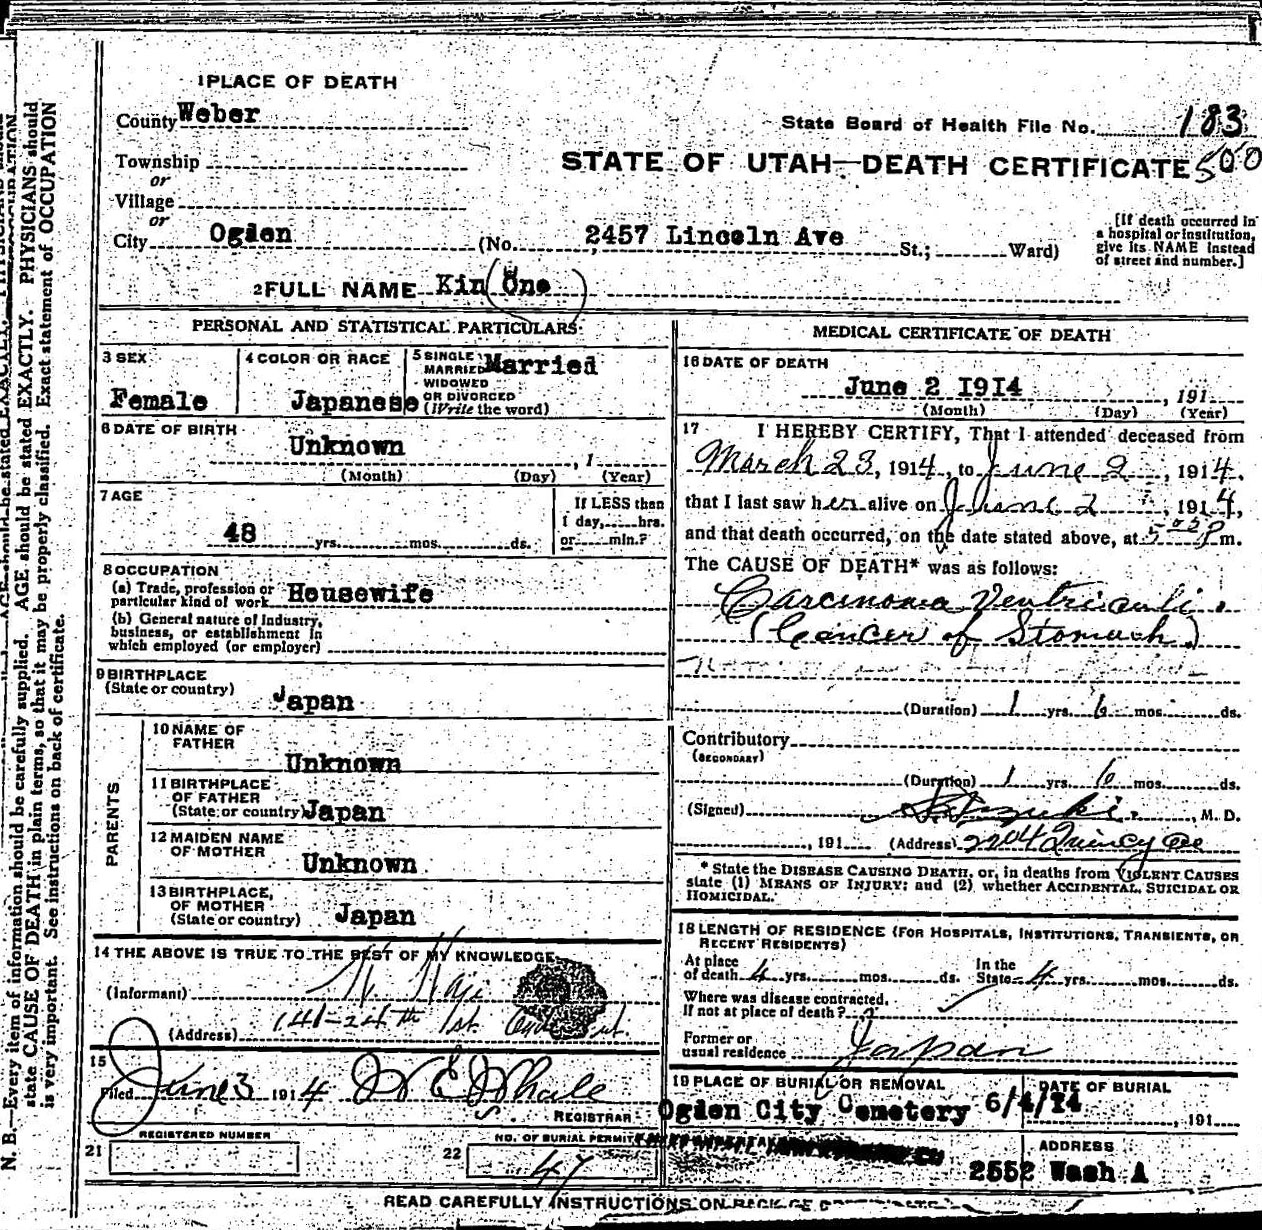 1 PLACE OF DEATH
County Weber
State Board of Health File No. 183
Township
STATE OF UTAH—DEATH CERTIFICATE 500
or
Village
or
City Ogden (No. 2457 Lincoln Ave St.; Ward)
[If death occurred in
a hospital or institution,
give its NAME instead
of street and number.]
2 FULL NAME Kin (One)
PERSONAL AND STATISTICAL PARTICULARS
3 SEX
Female
4 COLOR OR RACE
Japanese
5 SINGLE
MARRIED
WIDOWED
OR DIVORCED
(Write the word)
Married
6 DATE OF BIRTH
Unknown
, 1
(Month) (Day) (Year)
7 AGE
48 yrs. mos. ds.
If LESS than
1 day, hrs.
or min.?
8 OCCUPATION
(a) Trade, profession or
particular kind of work Housewife
(b) General nature of industry,
business, or establishment in
which employed (or employer)
9 BIRTHPLACE
(State or country) Japan
PARENTS
10 NAME OF
FATHER
Unknown
11 BIRTHPLACE
OF FATHER
(State or country) Japan
12 MAIDEN NAME
OF MOTHER
Unknown
13 BIRTHPLACE
OF MOTHER
(State or country) Japan
14 THE ABOVE IS TRUE TO THE BEST OF MY KNOWLEDGE
(Informant)
(Address) 141-24th St.
15
Filed June 3 1914
REGISTRAR
21
REGISTERED NUMBER
22
NO. OF BURIAL PERMIT
47
MEDICAL CERTIFICATE OF DEATH
16 DATE OF DEATH
June 2 1914 , 191
(Month) (Day) (Year)
17 I HEREBY CERTIFY, That I attended deceased from
March 23, 1914, to June 2, 1914,
that I last saw her alive on June 2, 1914,
and that death occurred, on the date stated above, at P m.
The CAUSE OF DEATH* was as follows:
Carcinoma Ventriculi.
(Cancer of Stomach)
(Duration) 1 yrs. 6 mos. ds.
Contributory
(SECONDARY)
(Duration) 1 yrs. 6 mos. ds.
(Signed) , M. D.
, 191 (Address) 2204 Quincy Ave
* State the DISEASE CAUSING DEATH, or, in deaths from VIOLENT CAUSES
state (1) MEANS OF INJURY; and (2) whether ACCIDENTAL, SUICIDAL OR
HOMICIDAL.
18 LENGTH OF RESIDENCE (FOR HOSPITALS, INSTITUTIONS, TRANSIENTS, OR
RECENT RESIDENTS)
At place
of death 4 yrs. mos. ds.
In the
State 4 yrs. mos. ds.
Where was disease contracted,
If not at place of death?
Former or
usual residence Japan
19 PLACE OF BURIAL OR REMOVAL
Ogden City Cemetery
DATE OF BURIAL
6/4/14 , 191
ADDRESS
2552 Wash A
READ CAREFULLY INSTRUCTIONS ON BACK OF
N. B.—Every item of information should be carefully supplied. AGE should be stated EXACTLY. PHYSICIANS should
state CAUSE OF DEATH in plain terms, so that it may be properly classified. Exact statement of OCCUPATION
is very important. See instructions on back of certificate.